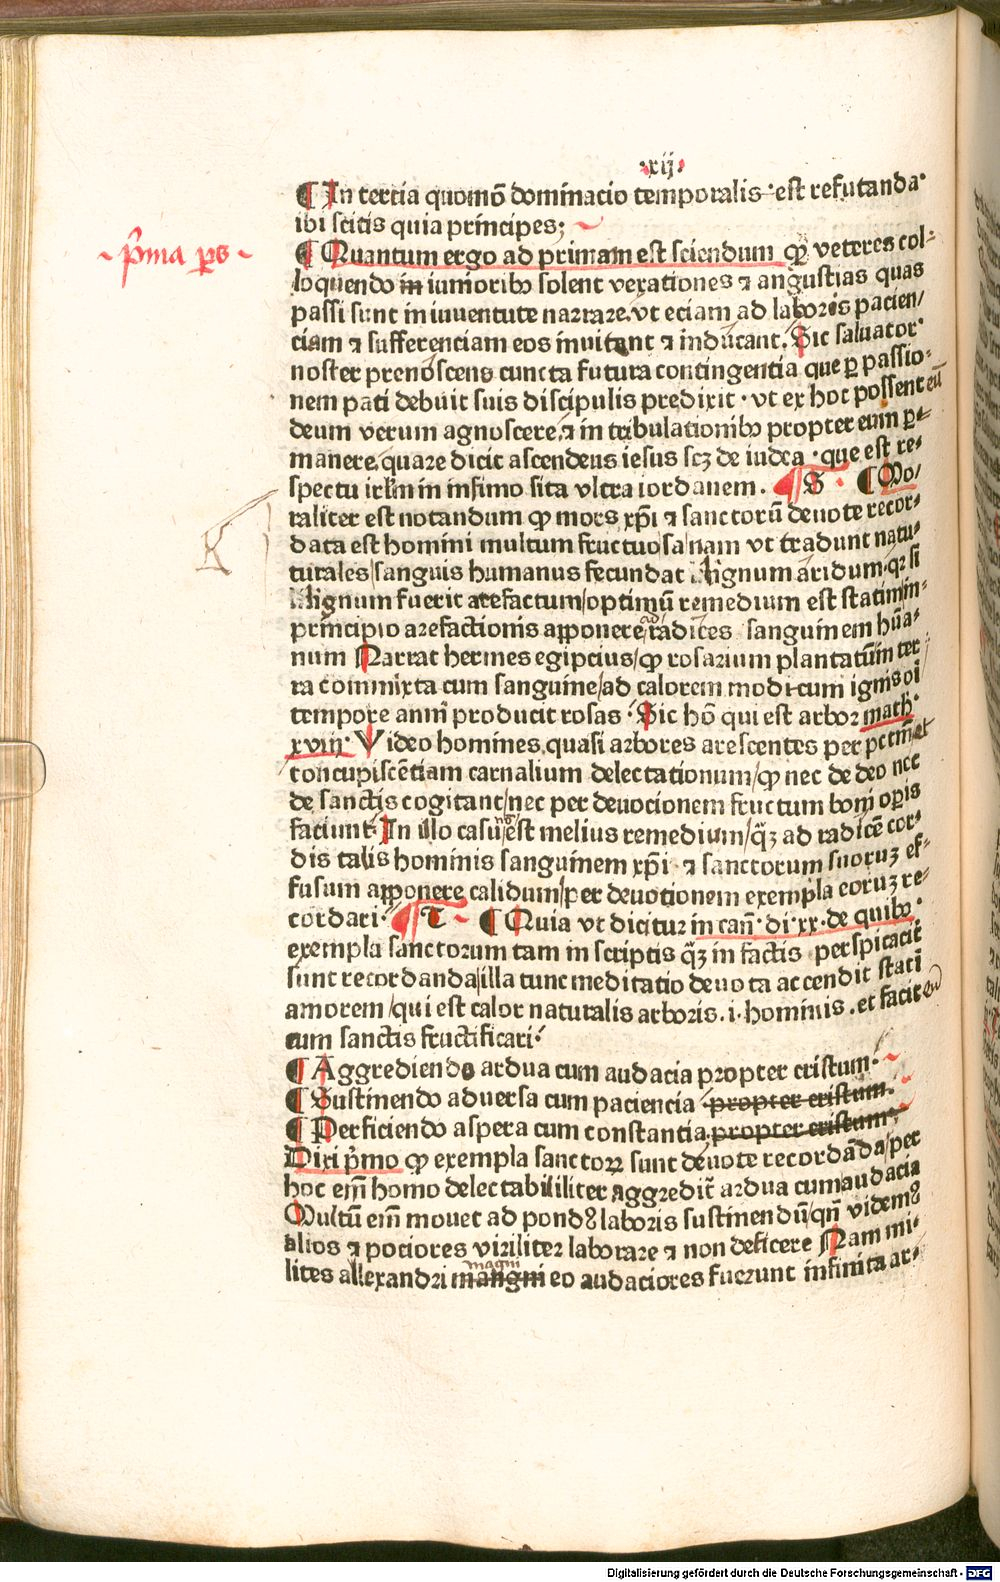 ·xij·
¶ In tercia quomō dominacio temporalis est refutanda·
ibi scitis quia principes;
~ p̄ma ps ~
¶ Quantum ergo ad primam est sciendum ꝙ veteres col⸗
loquendo in iumoribꝰ solent vexationes ⁊ angustias quas
passi sunt in iuuentute narrare. vt eciam ad laboris pacien/
ciam ⁊ sufferenciam eos inuitent ⁊ inducant. Sic saluator·
noster prenoscens cuncta futura contingentia que ꝑ passio⸗
nem pati debuit suis discipulis predixit · vt ex hoc possent eū
deum verum agnoscere ⁊ in tribulationibꝰ propter eum ꝑ⸗
manere. quare dicit ascendens iesus scꝫ de iudea · que est re⸗
spectu irlm in infimo sita vltra iordanem. ¶ S ¶ Mo/
raliter est notandum ꝙ mors xp̄i ⁊ sanctorū deuote recor⸗
data est homini multum fructuosa nam vt tradunt natu⸗
turales/sanguis humanus fecundat lignum aridum·qꝛ si
lignum fuerit arefactum/optimū remedium est statim in⸗
principio arefactionis apponere ad radices sanguinem hūa⸗
num Narrat hermes egipcius/ꝙ rosarium plantatū in ter
ra commixta cum sanguine/ad calorem modicum ignis oī
tempore anni producit rosas · Sic hō qui est arbor math·
xviij· Video homines quasi arbores arescentes per pctm̄ et
concupiscētiam carnalium delectationum/ꝙ nec de deo nec
de sanctis cogitant/nec per deuocionem fructum boni opis
faciunt· In illo casu nō est melius remedium/qꝫ ad radicē cor⸗
dis talis hominis sanguinem xp̄i ⁊ sanctorum suoruꝫ ef⸗
fusum apponere calidum/per deuotionem exempla eoruꝫ re⸗
cordari· ¶ T ¶ Quia vt dicitur in can̄· di xx· de quibꝰ·
exempla sanctorum tam in scriptis qꝫ in factis perspicacit̄
sunt recordanda/illa tunc meditatio deuota accendit statī
amorem/qui est calor naturalis arboris. i· hominis. et facit eū
cum sanctis fructificari·
¶ Aggrediendo ardua cum audacia propter cristum·
¶ Sustinendo aduersa cum paciencia propter cristum.
¶ Perficiendo aspera cum constantia propter cristum·
Dixi p̄mo ꝙ exempla sanctorꝝ sunt deuote recordāda/per
hoc em̄ homo delectabililiter aggredit̄ ardua cum audacia
Multū em̄ mouet ad pondꝰ laboris sustinendū/qn̄ videmꝰ
alios ⁊ pociores viriliter laborare ⁊ non deficere Nam mi⸗
magni
lites allexandri mangni eo audaciores fuerunt infinita ar⸗
Digitalisierung gefördert durch die Deutsche Forschungsgemeinschaft - DFG